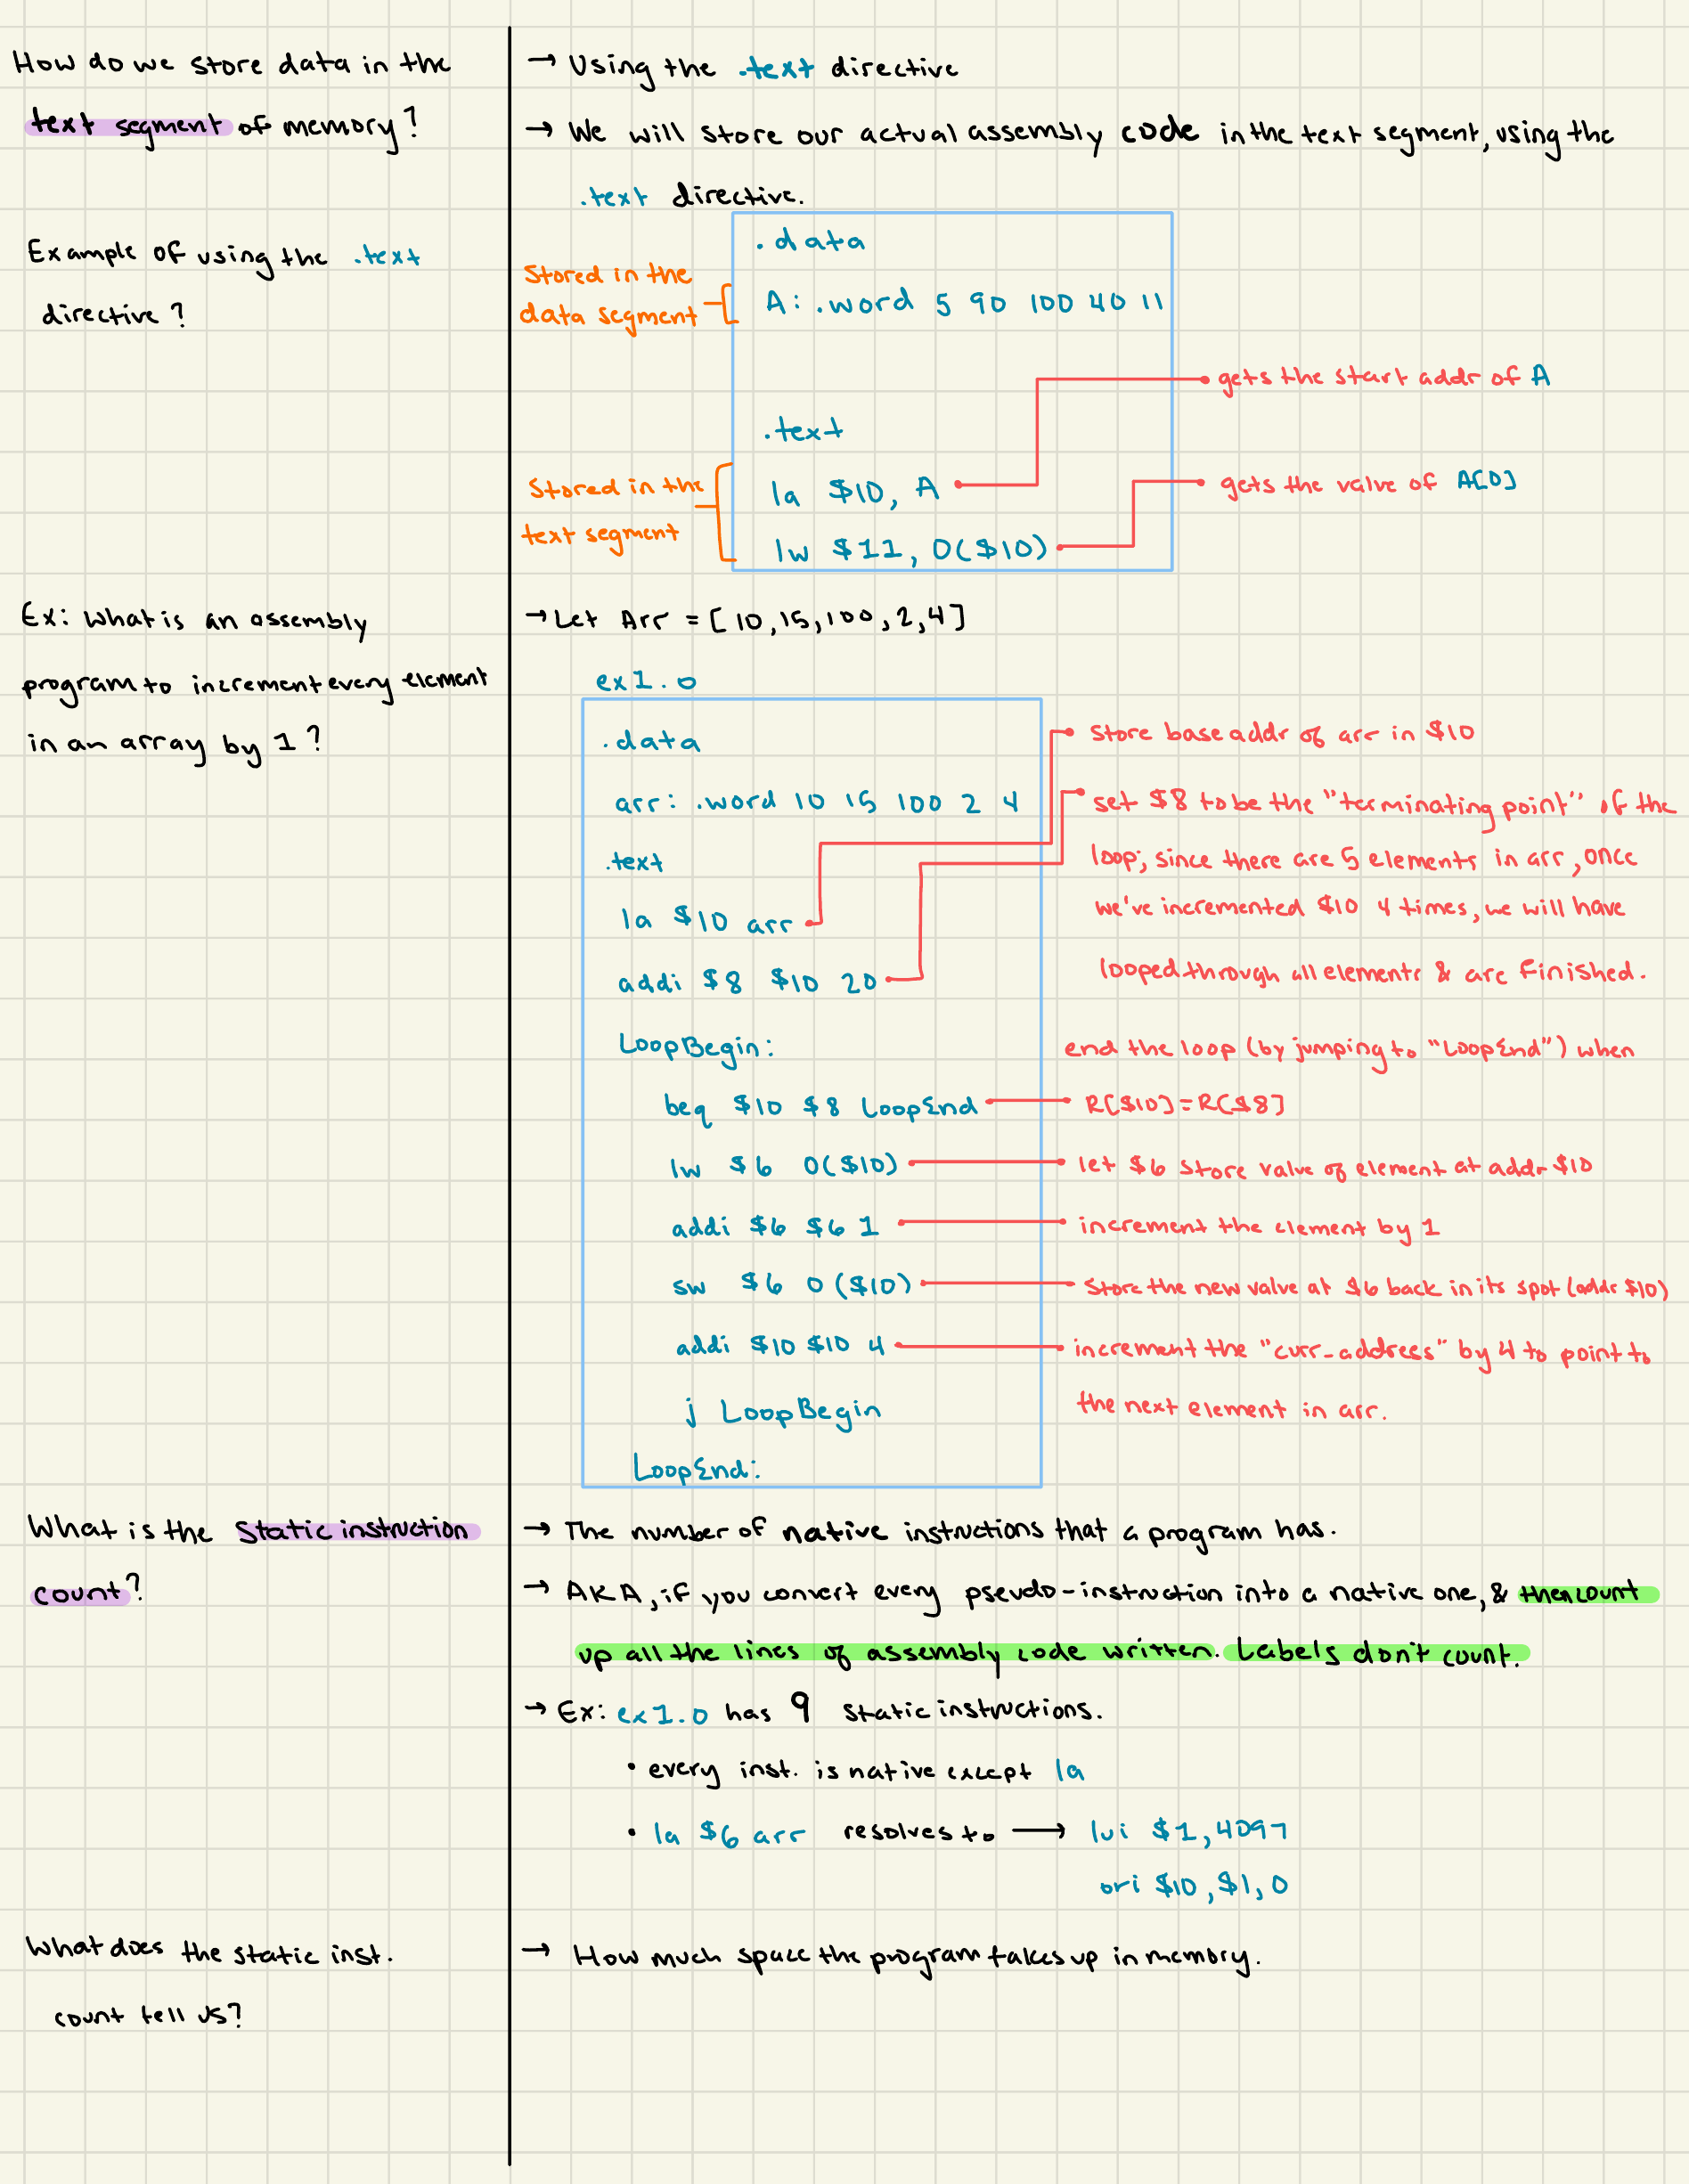 How do we store data in the
text segment of memory?
→ Using the .text directive
→ We will store our actual assembly code in the text segment, using the
.text directive.
Example of using the .text
directive?
.data
Stored in the
data segment
A: .word 5 90 100 40 11
gets the start addr of A
.text
Stored in the
text segment
la $10, A
gets the value of A[0]
lw $11, 0($10)
Ex: What is an assembly
program to increment every element
in an array by 1?
→ Let Arr = [10, 15, 100, 2, 4]
ex1.0
.data
store base addr of arr in $10
arr: .word 10 15 100 2 4
set $8 to be the "terminating point" of the
loop; since there are 5 elements in arr, once
we've incremented $10 4 times, we will have
looped through all elements & are finished.
.text
la $10 arr
addi $8 $10 20
LoopBegin:
end the loop (by jumping to "LoopEnd") when
beq $10 $8 LoopEnd
R[$10]=R[$8]
lw $6 0($10)
let $6 store value of element at addr $10
addi $6 $6 1
increment the element by 1
sw $6 0($10)
store the new value at $6 back in its spot (addr $10)
addi $10 $10 4
increment the "curr_address" by 4 to point to
the next element in arr.
j LoopBegin
LoopEnd:
What is the static instruction
count?
→ The number of native instructions that a program has.
→ AKA, if you convert every pseudo-instruction into a native one, & then count
up all the lines of assembly code written. Labels don't count.
→ Ex: ex1.0 has 9 static instructions.
• every inst. is native except la
• la $6 arr resolves to → lui $1, 4097
ori $10, $1, 0
What does the static inst.
count tell us?
→ How much space the program takes up in memory.